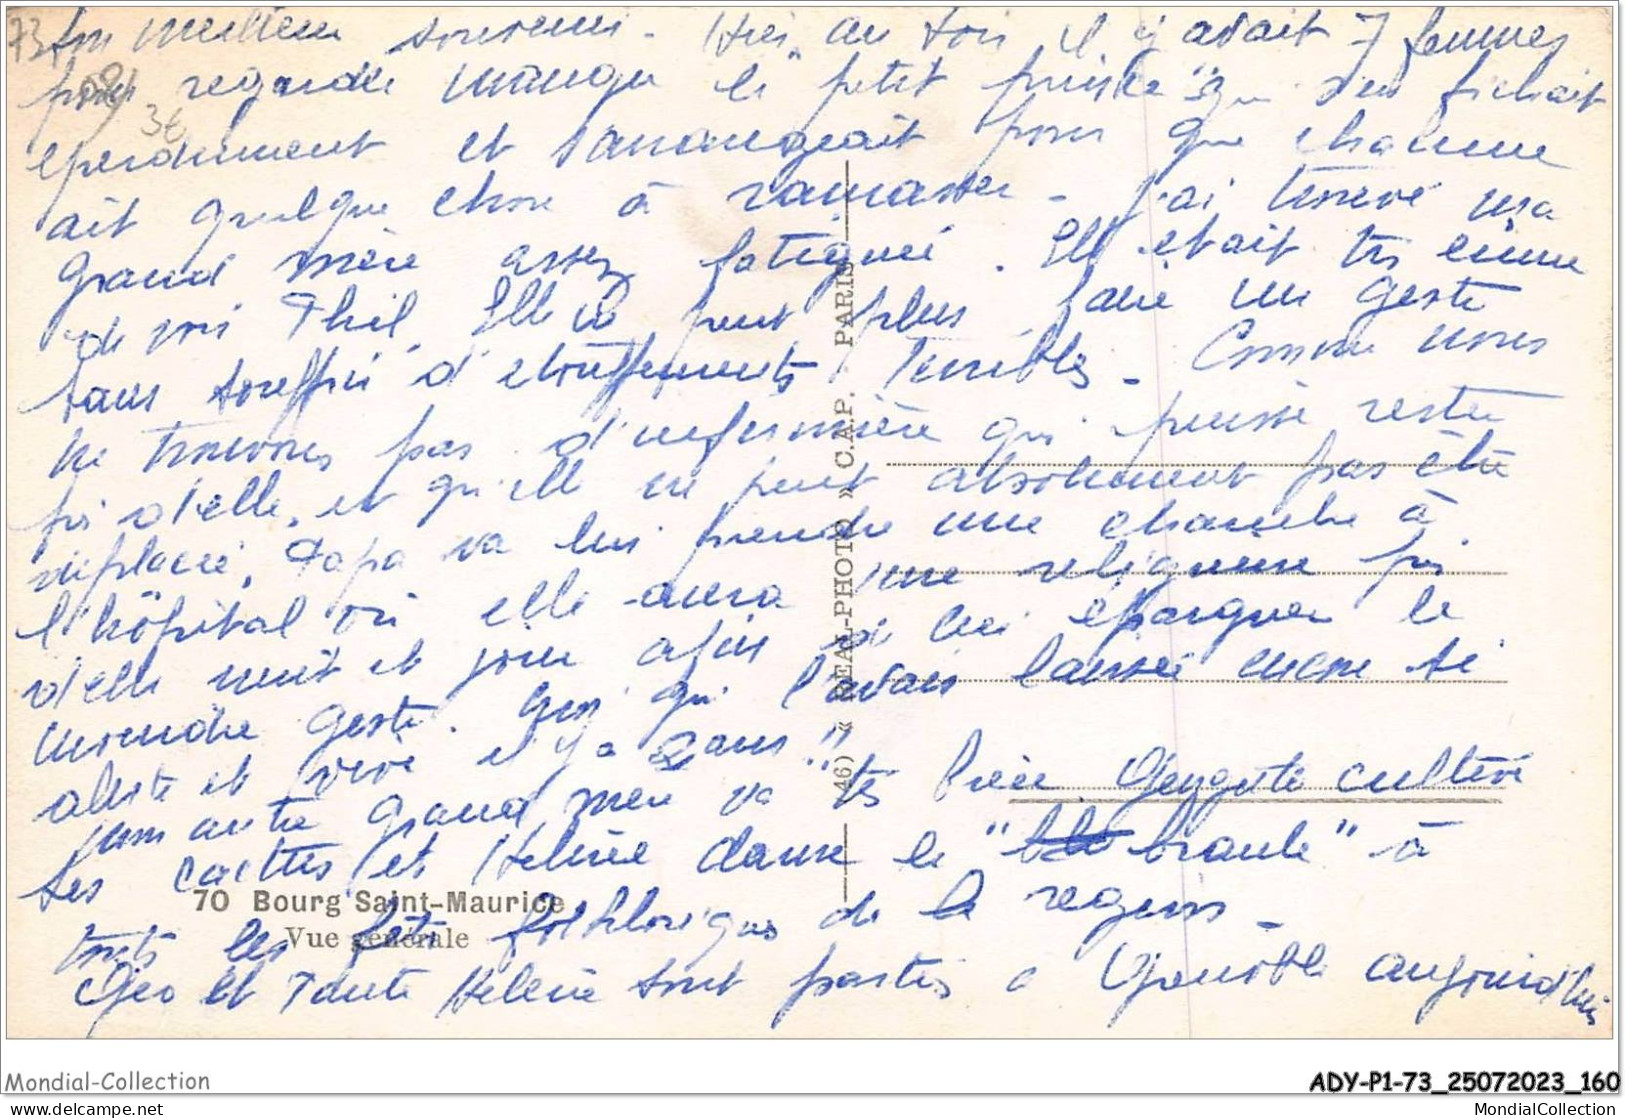 ton meilleur souvenir. Hier, au soir il y avait 7 femmes
pour regarder manger le "petit prince" qui s'en fichait
eperdument et s'arrangeait pour que chacune
ait quelque chose à ramasser - J'ai trouvé ma
Grand mère assez fatiguée. Elle etait très emue
de voir Phil. Elle ne peut plus faire un geste
sans souffrir d'etouffements terribles - Comme nous
ne trouvons pas d'infirmière qui puisse rester
près d'elle, et qu'elle ne peut absolument pas être
deplacée, Papa va lui prendre une chambre à
l'hôpital où elle aura une religieuse près
d'elle nuit et jour afin de lui epargner le
moindre geste. Moi qui l'avais laissée encore si
alerte et vive il y a 2 ans!!
mon autre Grand mère va très bien. Geo cultive
ses cactus et Helène danse le "branle" à
toutes les fêtes folkloriques de la region -
Geo et Tante Helène sont partis à Grenoble aujourd'hui
73
3€
70 Bourg Saint-Maurice
Vue générale
46) « REAL-PHOTO » C.A.P. PARIS
Mondial-Collection
ADY-P1-73_25072023_160
mondial-collection
MondialCollection